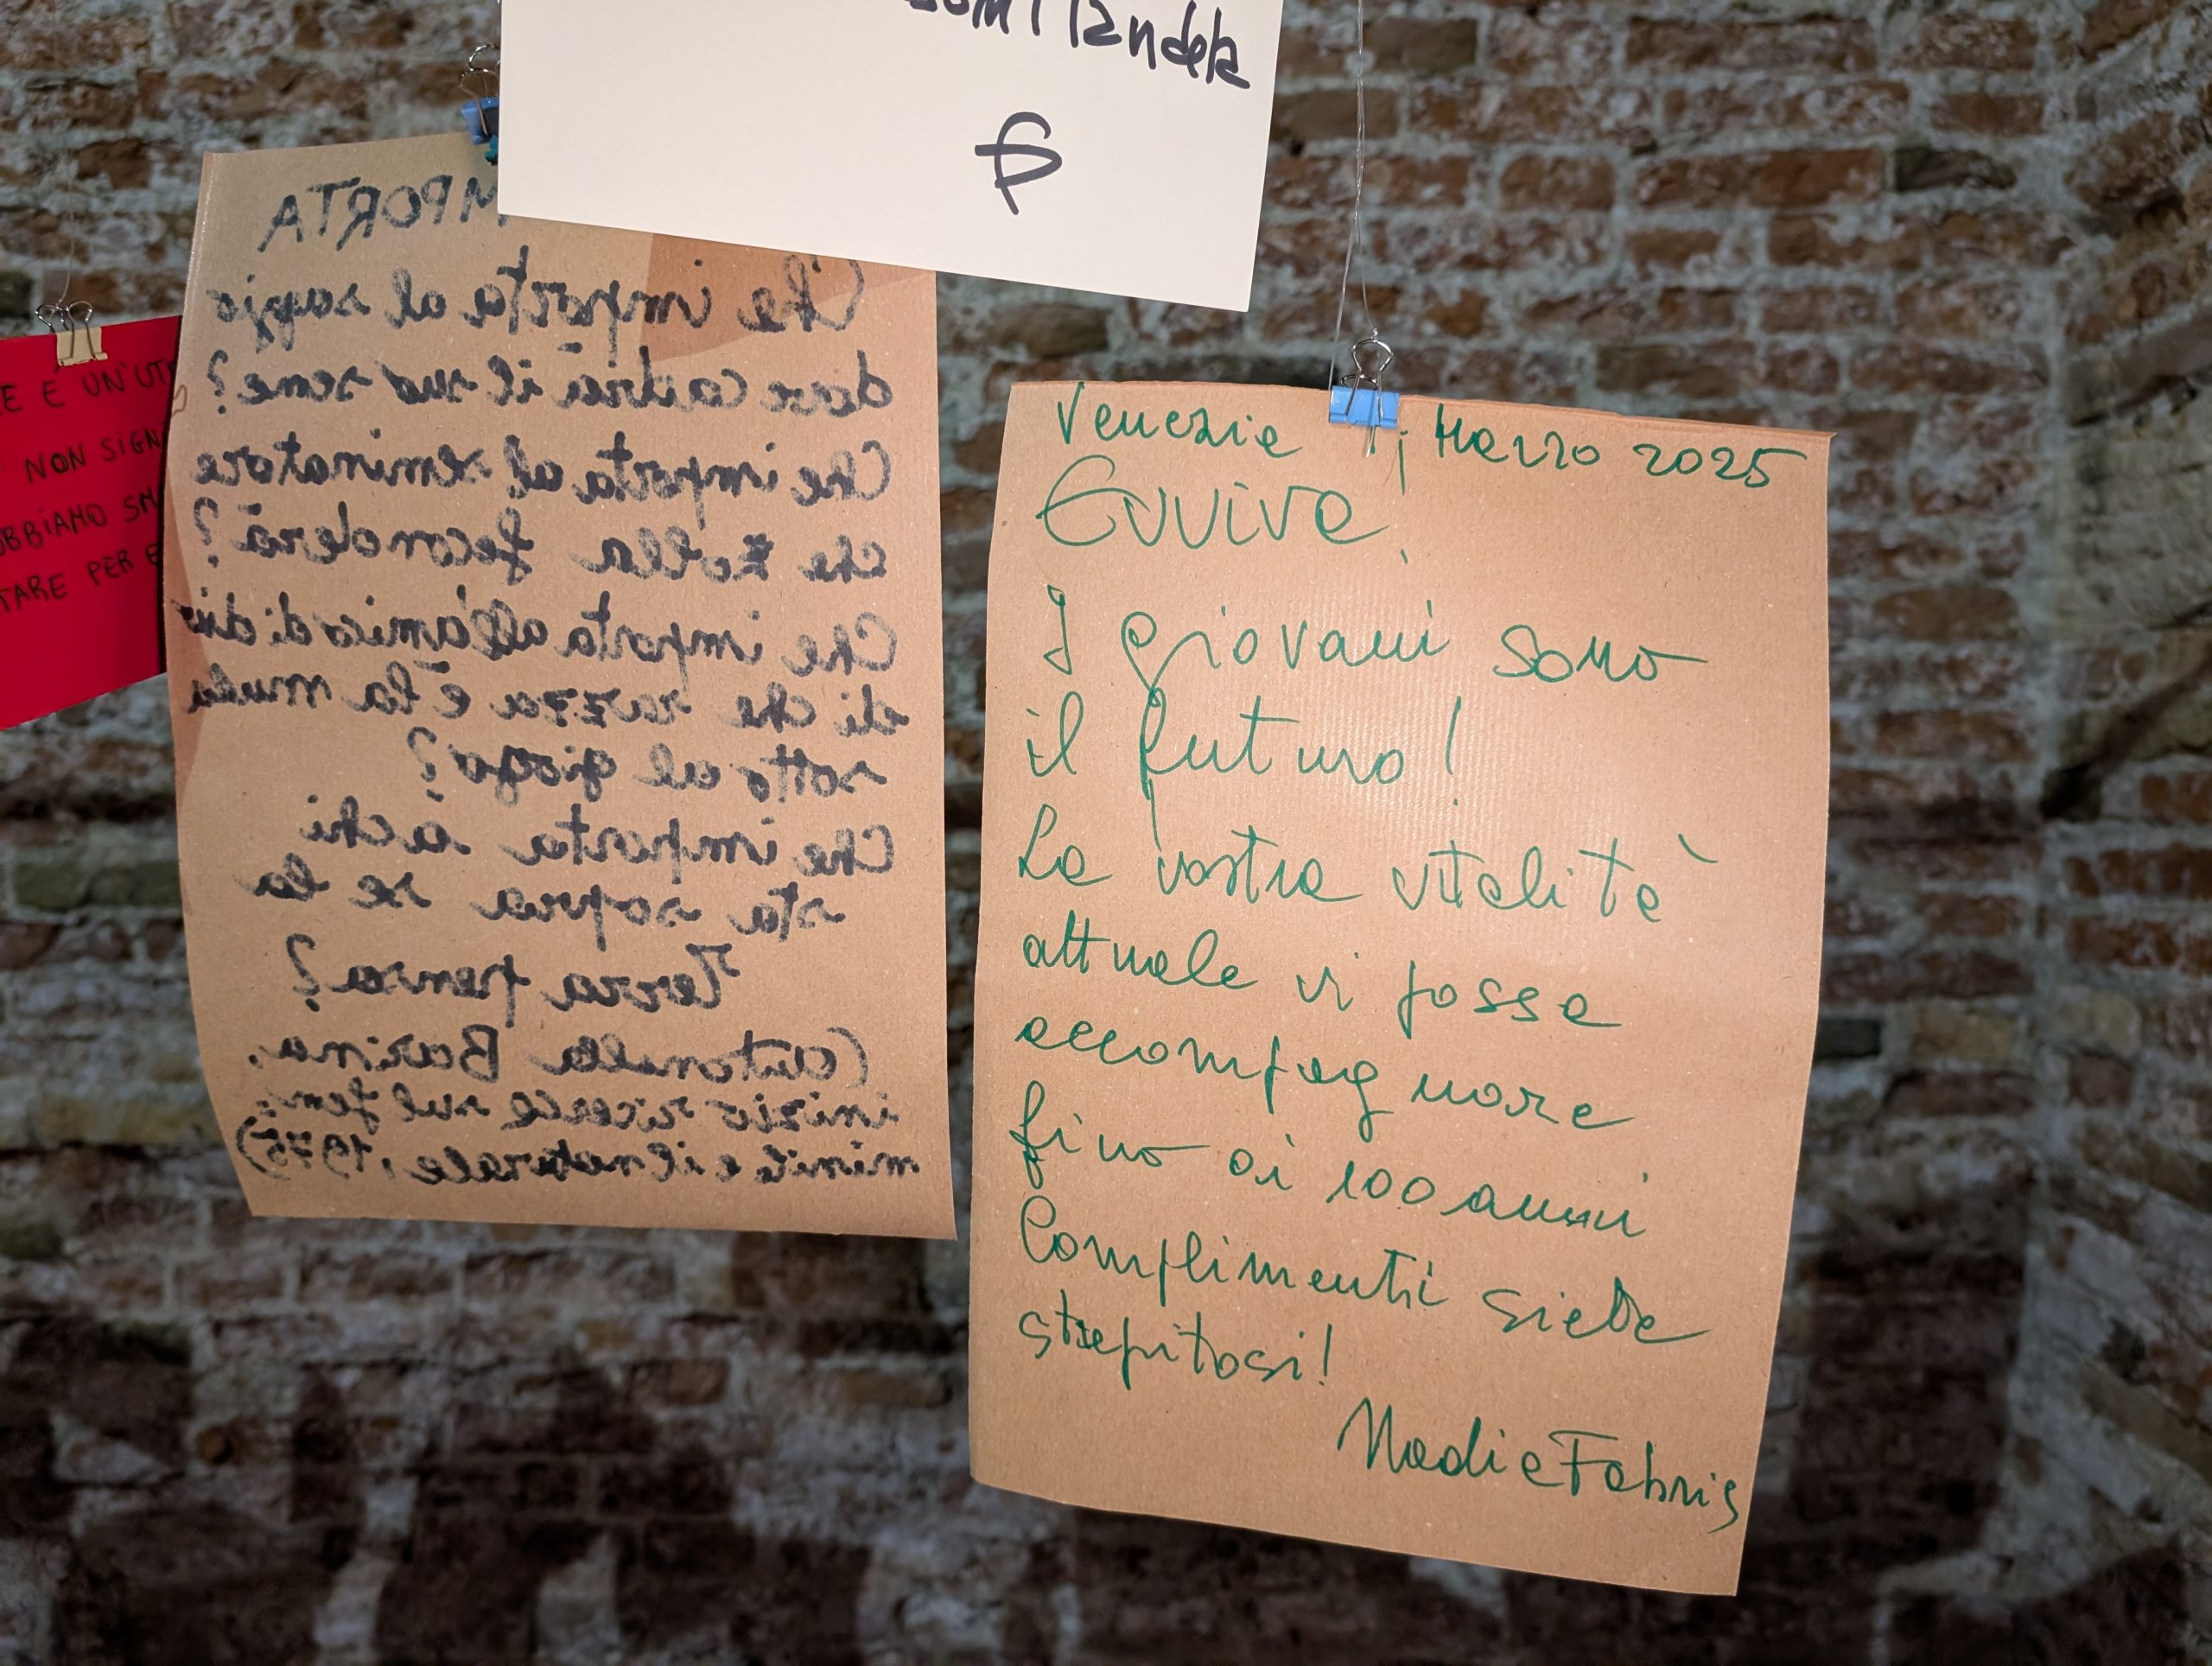 Mandela
E È UN'UT
NON SIGN
OBBIAMO SM
TARE PER E
MPORTA
Che importa al saggio
dove cadrà il suo seme?
Che importa al seminatore
che zolla feconderà?
Che importa all'amico di dio
di che razza è la mula
sotto al giogo?
Che importa a chi
sta sopra se la
Terra pensa?
(Antonella Barina,
inizio ricerche sul fem
minile e il naturale, 1975)
Venezia 1, Marzo 2025
Evviva!
I giovani sono
il futuro!
La vostra vitalità
attuale vi possa
accompagnare
fino ai 100 anni
Complimenti siete
strepitosi!
Nadia Fabris